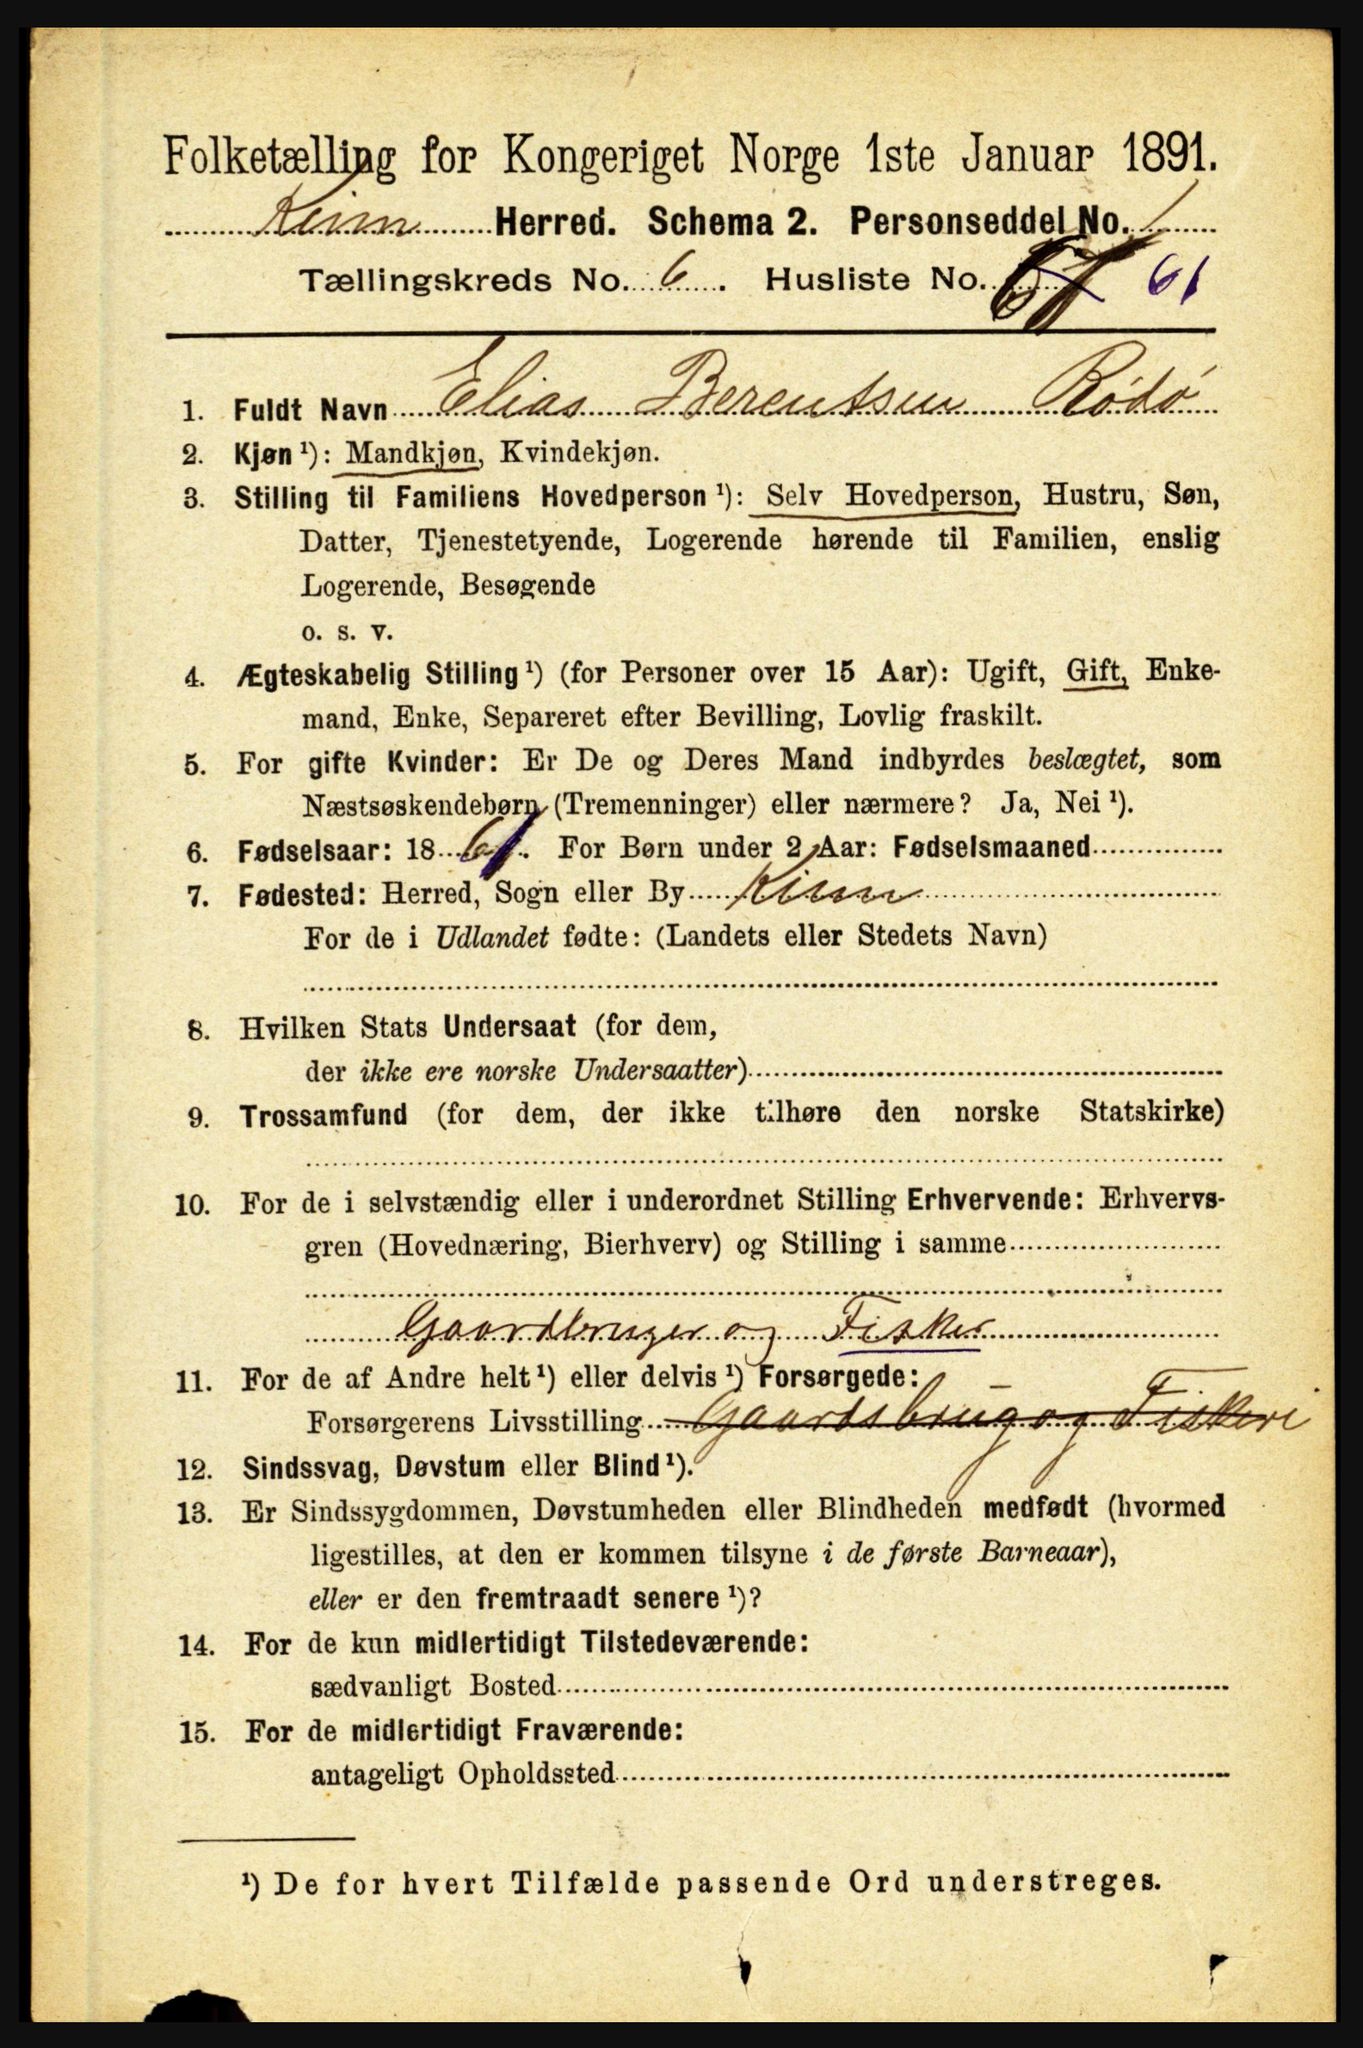 Folketælling for Kongeriget Norge 1ste Januar 1891.
Kinn Herred. Schema 2. Personseddel No. 1
Tællingskreds No. 6. Husliste No. 61
1. Fuldt Navn Elias Berentsen Rödö
2. Kjøn ¹): Mandkjøn, Kvindekjøn.
3. Stilling til Familiens Hovedperson ¹): Selv Hovedperson, Hustru, Søn,
Datter, Tjenestetyende, Logerende hørende til Familien, enslig
Logerende, Besøgende
o. s. v.
4. Ægteskabelig Stilling ¹) (for Personer over 15 Aar): Ugift, Gift, Enke-
mand, Enke, Separeret efter Bevilling, Lovlig fraskilt.
5. For gifte Kvinder: Er De og Deres Mand indbyrdes beslægtet, som
Næstsøskendebørn (Tremenninger) eller nærmere? Ja, Nei ¹).
6. Fødselsaar: 1861. For Børn under 2 Aar: Fødselsmaaned
7. Fødested: Herred, Sogn eller By Kinn
For de i Udlandet fødte: (Landets eller Stedets Navn)
8. Hvilken Stats Undersaat (for dem,
der ikke ere norske Undersaatter)
9. Trossamfund (for dem, der ikke tilhøre den norske Statskirke)
10. For de i selvstændig eller i underordnet Stilling Erhvervende: Erhvervs-
gren (Hovednæring, Bierhverv) og Stilling i samme
Gaardbruger og Fisker
11. For de af Andre helt ¹) eller delvis ¹) Forsørgede:
Forsørgerens Livsstilling Gaardsbrug og Fiskeri
12. Sindssvag, Døvstum eller Blind ¹).
13. Er Sindssygdommen, Døvstumheden eller Blindheden medfødt (hvormed
ligestilles, at den er kommen tilsyne i de første Barneaar),
eller er den fremtraadt senere ¹)?
14. For de kun midlertidigt Tilstedeværende:
sædvanligt Bosted
15. For de midlertidigt Fraværende:
antageligt Opholdssted
¹) De for hvert Tilfælde passende Ord understreges.